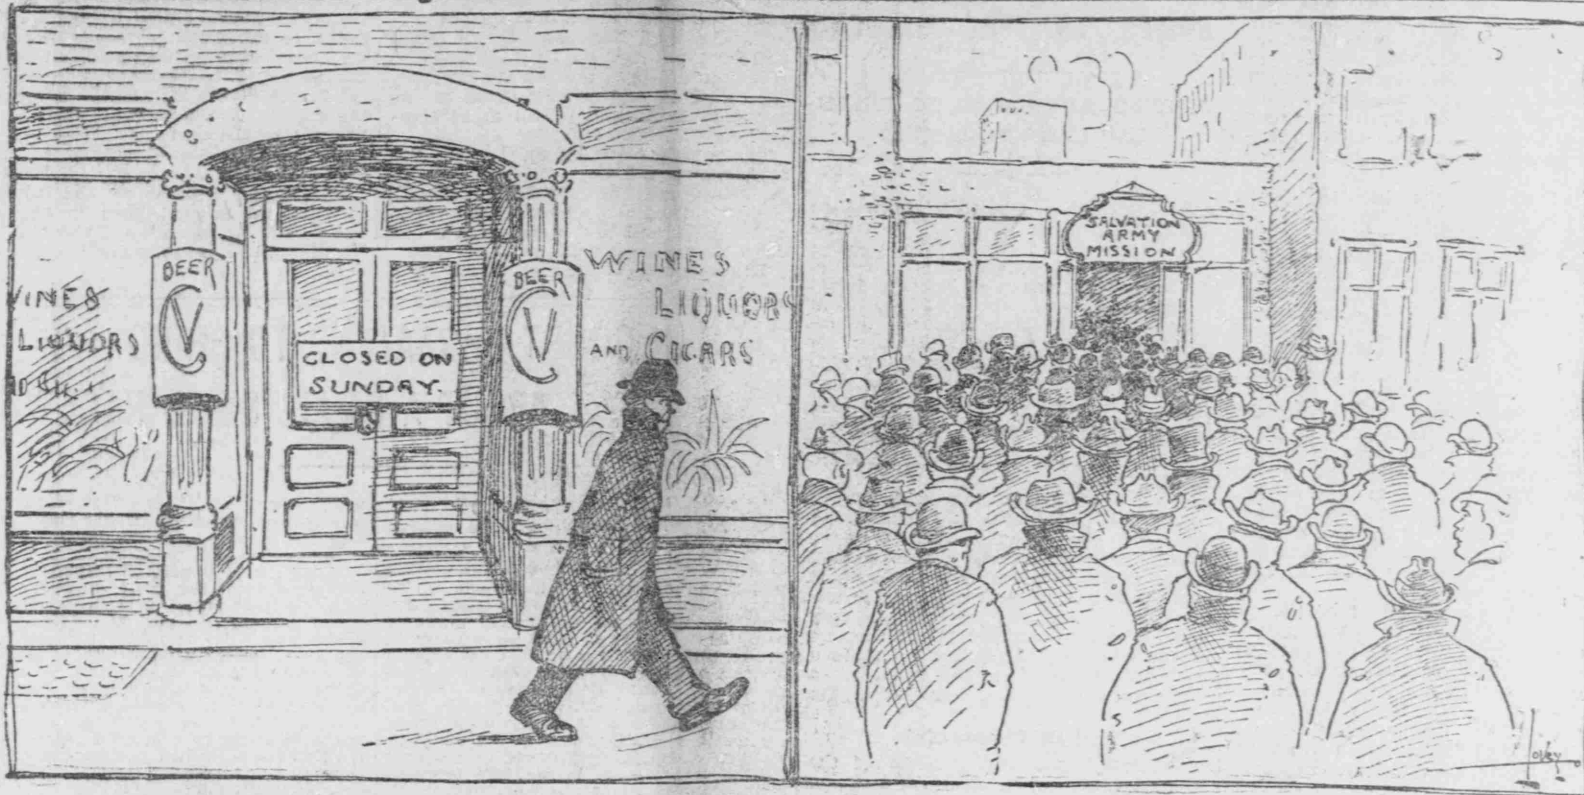 BEER
CV
LIQUORS
CLOSED ON
SUNDAY.
BEER
CV
WINES
LIQUORS
AND CIGARS
SALVATION
ARMY
MISSION